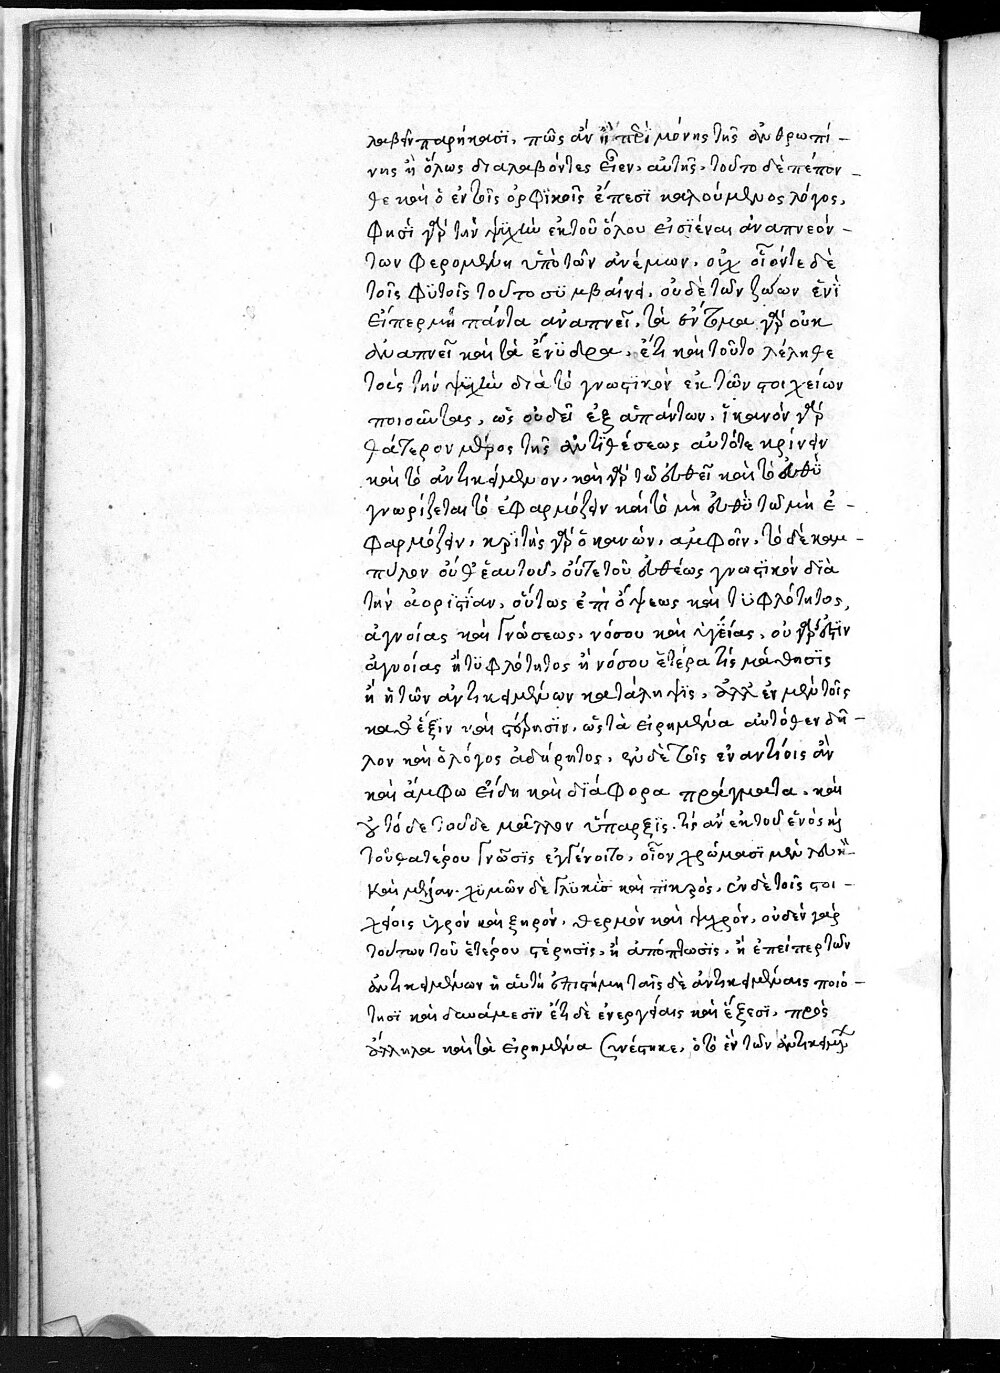 λαβεῖν παρήκασι, πῶς ἂν ἢ περὶ μόνης τῆς ἀνθρωπί-
νης ἢ ὅλως διαλαβόντες εἶεν, αὐτῆς, τοῦτο δὲ πέπον-
θε καὶ ὁ ἐν τοῖς ὀρφικοῖς ἔπεσι καλούμενος λόγος,
φησὶ γὰρ τὴν ψυχὴν ἐκ τοῦ ὅλου εἰσϊέναι ἀναπνεόν-
των φερομένην ὑπὸ τῶν ἀνέμων, οὐχ οἷόντε δὲ
τοῖς φυτοῖς τοῦτο συμβαίνειν, οὐδὲ τῶν ζώων ἐνὶ
εἴπερ μὴ πάντα ἀναπνεῖ, τὰ ἔντομα γὰρ οὐκ
ἀναπνεῖ καὶ τὰ ἔνϋδρα, ἔτι καὶ τοῦτο λέληθε
τοὺς τὴν ψυχὴν διὰ τὸ γνωστικὸν ἐκ τῶν στοιχείων
ποιοῦντας, ὡς οὐδεῖ ἐξ ἁπάντων, ἱκανὸν γὰρ
θάτερον μέρος τῆς ἀντιθέσεως αὐτότε κρίνειν
καὶ τὸ ἀντικείμενον, καὶ γὰρ τῶ εὐθεῖ καὶ τὸ εὐθὺ
γνωρίζεται τὸ ἐφαρμόζειν καὶ τὸ μὴ εὐθὺ τῶ μὴ ἐ-
φαρμόζειν, κριτὴς γὰρ ὁ κανὼν, ἀμφοῖν, τὸ δὲ καμ-
πύλον οὔθ' ἑαυτοῦ, οὔτε τοῦ εὐθέως γνωστικὸν διὰ
τὴν ἀοριστίαν, οὕτως ἐπὶ ὄψεως καὶ τυφλότητος,
ἀγνοίας καὶ γνώσεως, νόσου καὶ ὑγείας, οὐ γάρ ἐστιν
ἀγνοίας ἢ τυφλότητος ἢ νόσου ἑτέρα τίς μάθησις
ἢ ἡ τῶν ἀντικειμένων κατάληψις, ἀλλ' ἐν μὲν τοῖς
καθ' ἕξιν καὶ στέρησιν, ὥς τὰ εἰρημένα αὐτόθεν δῆ-
λον καὶ ὁ λόγος ἀδήριτος, ἐν δὲ τοῖς ἐναντίοις ἂν
καὶ ἄμφω εἴδη καὶ διάφορα πράγματα, καὶ
οὐ τόδε τοῦδε μᾶλλον ὕπαρξις, τίς ἂν ἐκ τοῦ ἑνὸς ἡ
τοῦ θατέρου γνῶσις ἐγγένοιτο, οἷον χρώμασι μὲν
καὶ μέλαν, χυμῶν δὲ γλυκὺς καὶ πικρός, ἐν δὲ τοῖς στοι-
χείοις ὑγρὸν καὶ ξηρόν, θερμὸν καὶ ψυχρόν, οὐδὲν γὰρ
τούτων τοῦ ἑτέρου στέρησις, ἢ ἀπόπτωσις, ἢ ἐπείπερ τῶν
ἀντικειμένων ἡ αὐτὴ ἐπιστήμη ταῖς δὲ ἀντικειμέναις ποιό-
τησι καὶ δυνάμεσιν ἔτι δὲ ἐνεργείαις καὶ ἕξεσι, πρὸς
ἄλληλα καὶ τὰ εἰρημένα συνέστηκε, ὅτε ἓν τῶν ἀντικειμένων